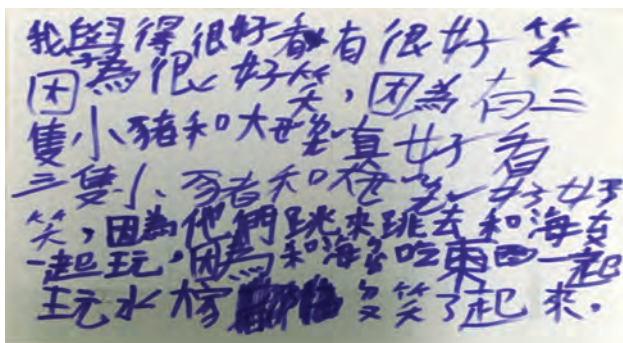 我學得很好看有很好笑
因為很好笑,因為有三
隻小豬和大世界真好看
三隻小豬和 好好
笑,因為他們跳來跳去和海
一起玩,因為和海 吃東西一起
玩水 笑了起來。